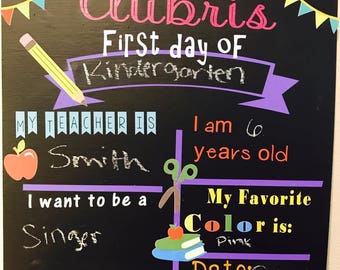 Aubris
First day of
Kindergarten
MY TEACHER IS
Smith
I am 6
years old
I want to be a
Singer
My Favorite
Color is:
Pink
Date: